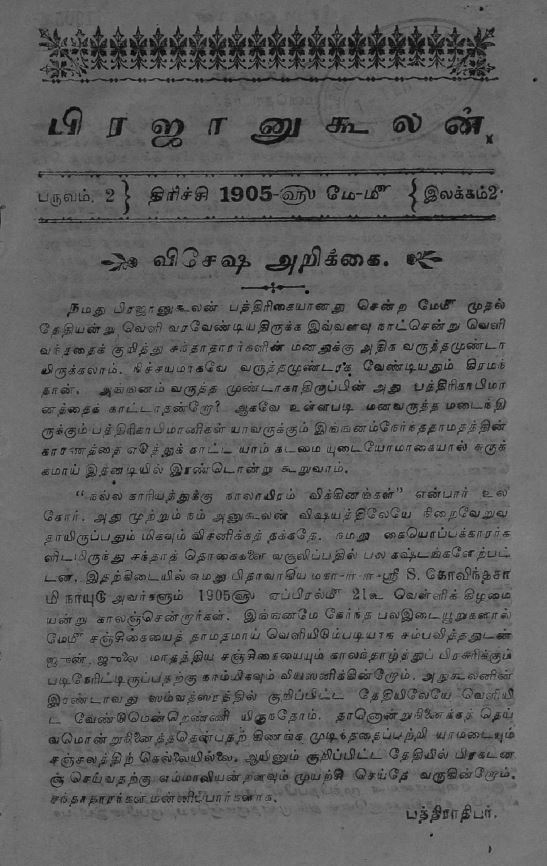 பிரஜாநுகூலன்.
பருவம். 2 } திரிச்சி 1905-௵ மே-௴ { இலக்கம் 2.
விசேஷ அறிக்கை.
நமது பிரஜாநுகூலன் பத்திரிகையானது சென்ற மே௴ முதல்
தேதியன்று வெளி வரவேண்டியதிருக்க இவ்வளவு நாட்சென்று வெளி
வந்ததைக் குறித்து சந்தாதாரர்களின் மனதுக்கு அதிக வருத்தமுண்டா
யிருக்கலாம். நிச்சயமாகவே வருத்தமுண்டாக வேண்டியதும் கிரமந்
தான். அங்ஙனம் வருத்த முண்டாகாதிருப்பின் அது பத்திரிகாபிமா
னத்தைக் காட்டாதன்றோ? ஆகவே உள்ளபடி மனவருத்த மடைந்தி
ருக்கும் பத்திரிகாபிமானிகள் யாவருக்கும் இங்ஙனம்நேர்ந்ததாமதத்தின்
காரணத்தை எடுத்துக் காட்ட யாம் கடமை யுடையோமாகையால் சுருக்
கமாய் இதனடியில் இரண்டொன்று கூறுவாம்.
"நல்ல காரியத்துக்கு நாலாயிரம் விக்கினங்கள்" என்பார் உல
கோர். அது முற்றும் நம் அனுகூலன் விஷயத்திலேயே நிறைவேறுவ
தாயிருப்பதும் மிகவும் விசனிக்கத் தக்கதே. நமது கையொப்பக்காரர்க
ளிடமிருந்து சந்தாத் தொகைகளை வசூலிப்பதில் பல கஷ்டங்களேற்பட்
டன. இதற்கிடையில் எமது பிதாவாகிய மகா-ா-ா-ஸ்ரீ S. கோவிந்தசா
மி நாயுடு அவர்களும் 1905௵ ஏப்பிரல்௴ 21௳ வெள்ளிக் கிழமை
யன்று காலஞ்சென்றார்கள். இவ்வனமே நேர்ந்த பலஇடையூறுகளால்
மே௴ சஞ்சிகையைத் தாமதமாய் வெளியிடும்படியாக சம்பவித்ததுடன்
ஜுன், ஜுலை மாதத்திய சஞ்சிகையையும் காலந்தாழ்த்துப் பிரசுரிக்கும்
படிநேரிட்டிருப்பதற்கு நாம்மிகவும் வியஸனிக்கின்றோம். அநுகூலனின்
இரண்டாவது ஸம்வத்ஸரத்தில் குறிப்பிட்ட தேதியிலேயே வெளியி
ட வேண்டுமென்றெண்ணி யிருந்தோம். தானொன்றுநினைக்கத் தெய்
வமொன்றுநினைத்ததென்பதற் கிணங்க முடிந்ததைப்பற்றி யாமடையும்
சஞ்சலத்திற் கெல்லையில்லை. ஆயினும் குறிப்பிட்ட தேதியில் பிரகடன
ஞ் செய்வதற்கு எம்மாலியன்றளவும் முயற்சி செய்தே வருகின்றோம்.
சந்தாதாரர்கள் மன்னிப்பார்களாக.
பத்திராதிபர்.